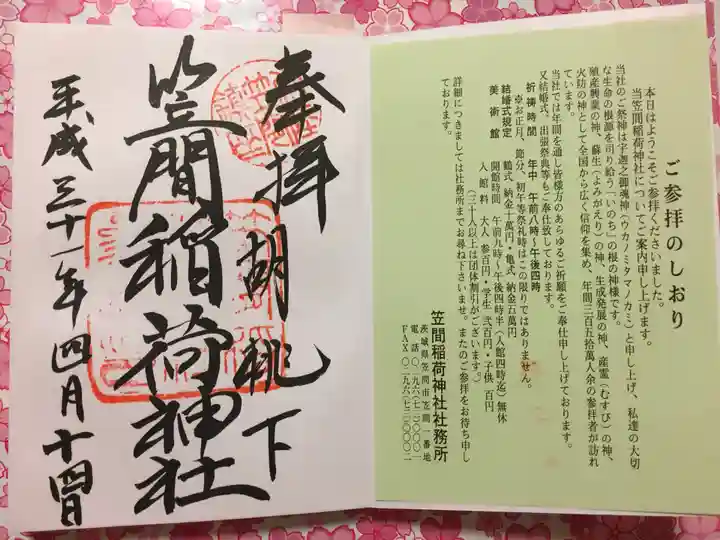 ご参拝のしおり
本日はようこそご参拝くださいました。
当笠間稲荷神社についてご案内申し上げます。
当社のご祭神は宇迦之御魂神(ウカノミタマノカミ)と申し上げ、私達の大切
な生命の根源を司り給う「いのち」の根の神様です。
殖産興業の神、蘇生(よみがえり)の神、生成発展の神、産霊(むすび)の神、
火防の神として全国から広く信仰を集め、年間三百五拾萬人余の参拝者が訪れ
ています。
当社では年間を通し皆様方のあらゆるご祈願をご奉仕申し上げております。
又結婚式、出張祭典等もご奉仕致しております。
祈祷時間 年中 午前八時〜午後四時
卓お正月、節分、初午等祭礼時はこの限りではありません。
結婚式規定 鶴式 納金十萬円・亀式 納金五萬円
美術館 開館時間 午前九時〜午後四時半(入館四時迄)無休
入館料 大人 参百円・学生 弐百円・子供 百円
(三十人以上は団体割引がございます。)
詳細につきましては社務所までお尋ね下さいませ。またのご参拝をお待ち申し
ております。
笠間稲荷神社社務所
茨城県笠間市笠間一番地
電話〇二九六(七三)〇〇〇一
FAX〇二九六(七三)〇〇〇二
奉拝 胡桃下
笠間稲荷神社
平成三十一年四月十四日